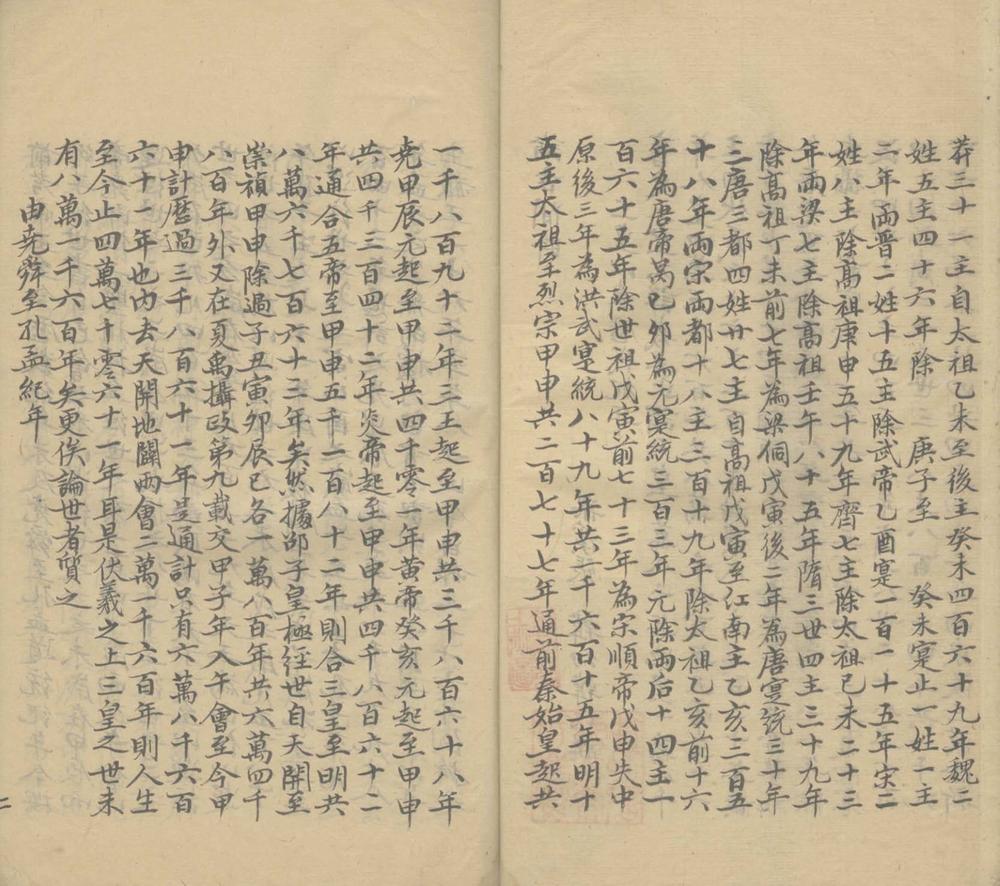 莽三十一主自太祖乙未至後主癸未四百六十九年魏二
姓五主四十六年除 庚子至 癸未寔止一姓一主
二年兩晉二姓十五主除武帝乙酉寔一百一十五年宋二
姓八主除高祖庚申五十九年齊七主除太祖己未二十三
年兩梁七主除高祖壬午八十五年隋三世四主三十九年
除高祖丁未前七年為梁侗戊寅後二年為唐寔統三十年
三唐三都四姓廿七主自高祖戊寅至江南主乙亥三百五
十八年兩宋兩都十八主三百十九年除太祖乙亥前十六
年為唐帝昺己卯為元寔統三百三年元除兩后十四主一
百六十五年除世祖戊寅前七十三年為宋順帝戊申失中
原後三年為洪武寔統八十九年共一千六百十五年明十
五主太祖至烈宗甲申共二百七十七年通前秦始皇起共
一千八百九十二年三王起至甲申共三千八百六十八年
堯甲辰元起至甲申共四千零一年黃帝癸亥元起至甲申
共四千三百四十二年炎帝起至甲申共四千八百六十二
年通合五帝至甲申五千一百八十二年則合三皇至明共
八萬六千七百六十三年矣然據邵子皇極經世自天開至
崇禎甲申除過子丑寅卯辰巳各一萬八百年共六萬四千
八百年外又在夏禹攝政第九載交甲子年入午會至今甲
申計曆過三千八百六十一年是通計只有六萬八千六百
六十一年也內去天開地闢兩會二萬一千六百年則人生
至今止四萬七千零六十一年耳是伏羲之上三皇之世未
有八萬一千六百年矣更俟論世者質之
由堯舜至孔孟紀年
二